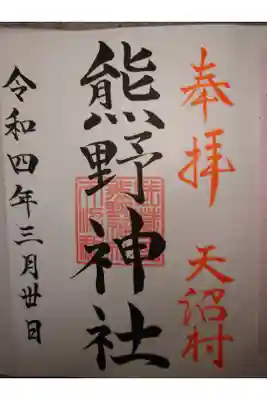 奉拝 天沼村
熊野神社
令和四年三月丗日